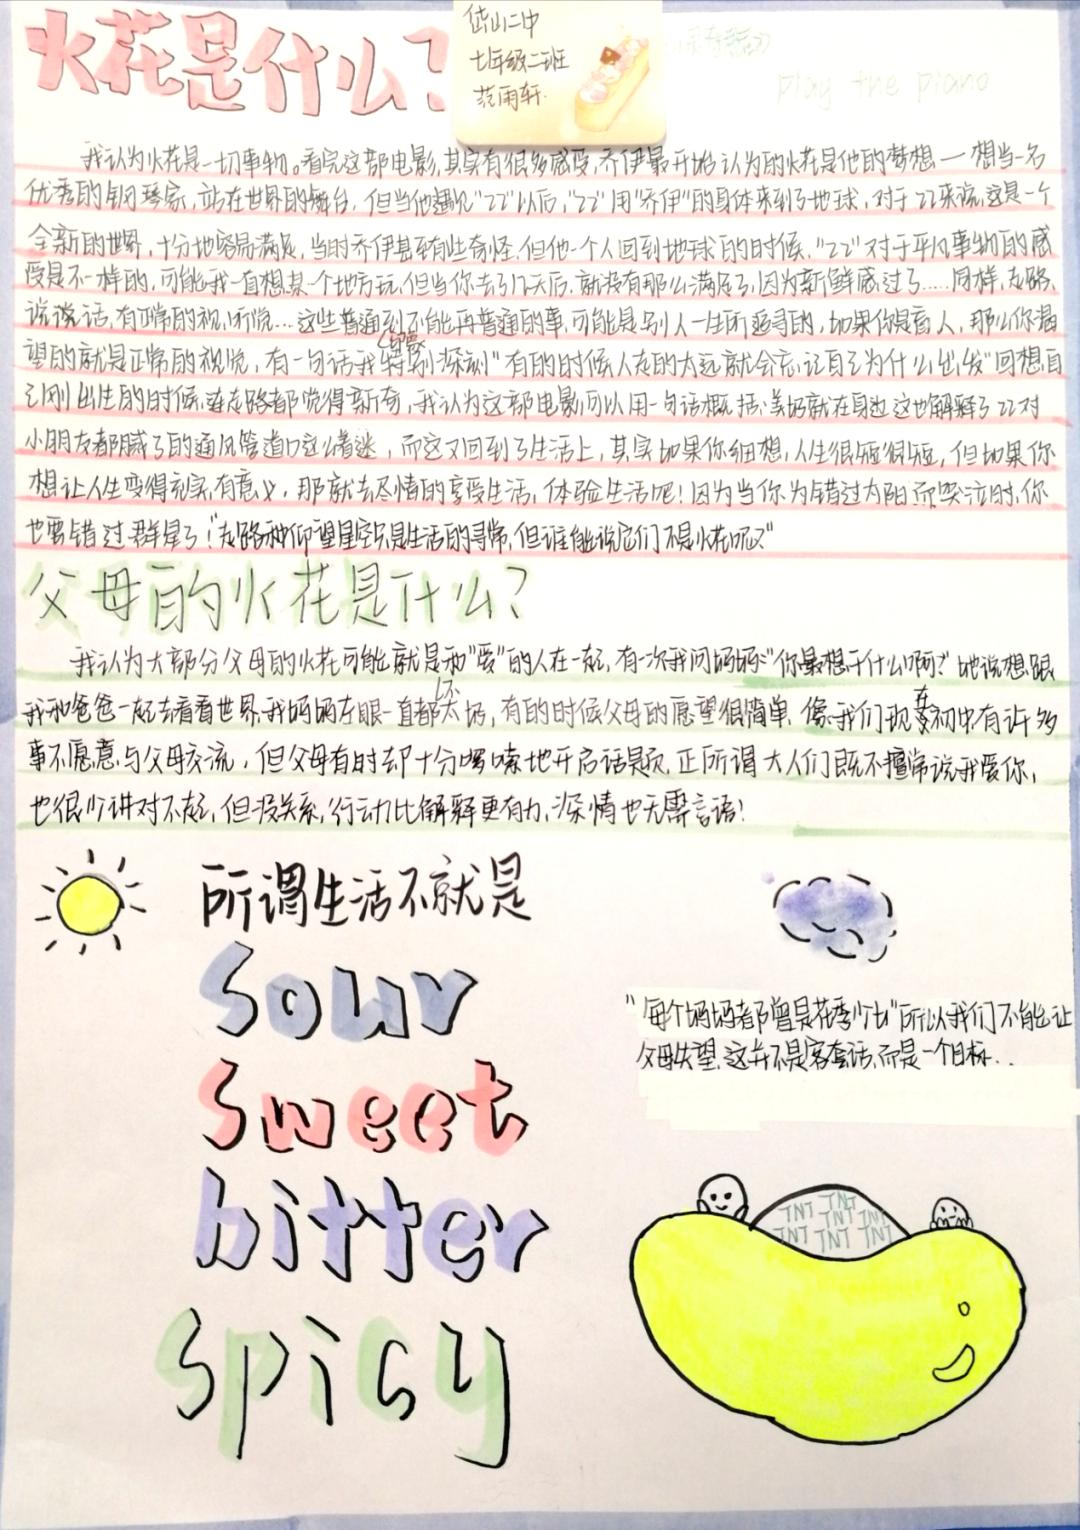 火花是什么?
岱山二中
七年级二班
范雨轩
play the piano
我认为火花是一切事物。看完这部电影,其实有很多感受,乔伊最开始认为的火花是他的梦想—想当一名
优秀的钢琴家,站在世界的舞台,但当他遇见"22"以后,"22"用"乔伊"的身体来到了地球,对于22来说,这是一个
全新的世界,十分地容易满足,当时乔伊甚至有些奇怪.但他一个人回到地球的时候."22"对于平凡事物的感
受是不一样的,可能我一直想某个地方玩,但当你去了几天后,就没有那么满足了,因为新鲜感过了……同样,走路,
说说话,有正常的视,听觉…这些普通到不能再普通的事,可能是别人一生所追寻的,如果你是盲人,那么你渴
望的就是正常的视觉,有一句话我印象特别深刻"有的时候人走的太远就会忘记自己为什么出发"回想自
己刚出生的时候,连走路都觉得新奇,我认为这部电影可以用一句话概括:美好就在身边这也解释了22对
小朋友都腻了的通风管道口这么着迷,而这又回到了生活上,其实如果你细想,人生很短很短,但如果你
想让人生变得充实,有意义,那就去尽情的享受生活,体验生活吧!因为当你为错过太阳而哭泣时,你
也要错过群星了!"走路和仰望星空只是生活的寻常,但谁能说它们不是火花呢?"
父母的火花是什么?
我认为大部分父母的火花可能就是和"爱"的人在一起,有一次我问妈妈:"你最想干什么啊?"她说想跟
我和爸爸一起去看看世界,我妈妈左眼一直都不太好,有的时候父母的愿望很简单,像我们现在初中有许多
事不愿意与父母交流,但父母有时却十分啰嗦地开启话题,正所谓大人们既不擅常说我爱你,
也很少讲对不起,但没关系,行动比解释更有力,深情也无需言语!
所谓生活不就是
sour
sweet
bitter
spicy
"每个妈妈都曾是花季少女"所以我们不能让
父母失望,这并不是客套话,而是一个目标..
TNT TNT
TNT TNT TNT
TNT TNT TNT